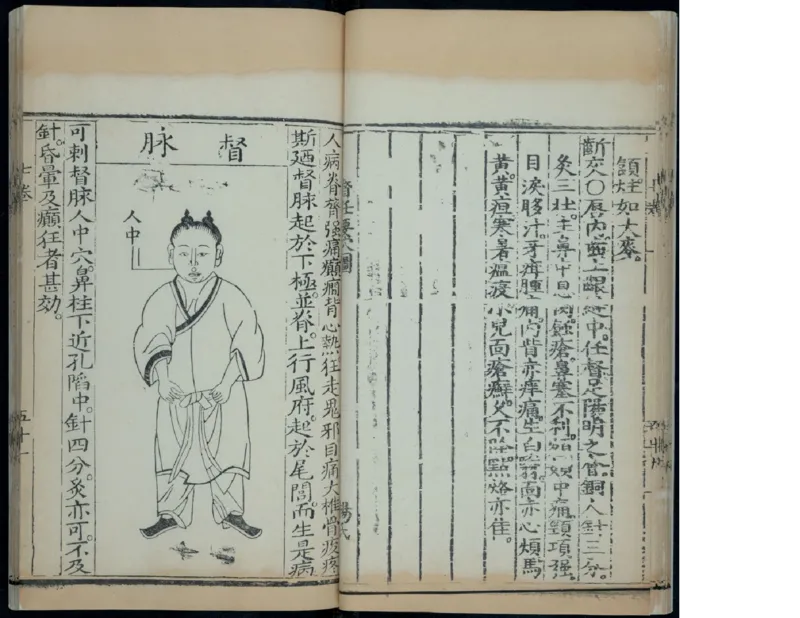 額。炷如大麥。
齗交○唇內齒上齦縫中。任督足陽明之會。銅人針三分。
灸三壯。主鼻中息肉蝕瘡。鼻塞不利。頞中痛。頸項強。
目淚眵汁。牙疳腫痛。內眥赤痒痛。生白翳。面赤心煩。馬
黃。黃疸。寒暑瘟疫。小兒面瘡癬。久不除。點烙亦佳。
督任要穴圖 楊氏
人病脊膂強痛癲癇背心熱狂走鬼邪目痛大椎骨痠疼
斯廼督脉起於下極。並脊。上行風府。起於尾閭。而生是病
督脉
人中
可刺督脉人中穴。鼻柱下近孔陷中。針四分。灸亦可。不及
針。昏暈及癲狂者甚効。
七卷 五十一